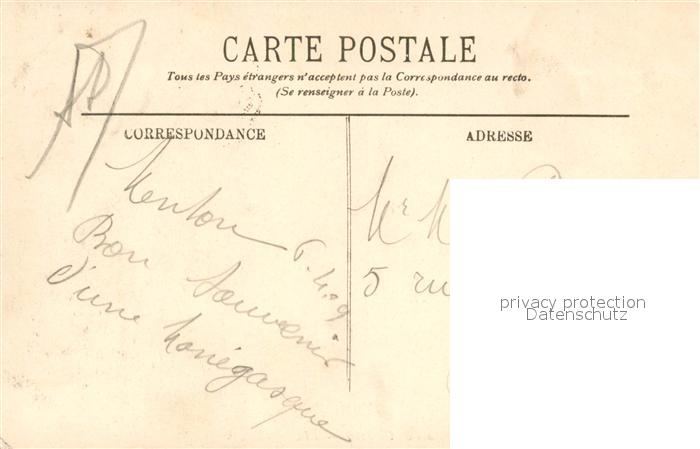 CARTE POSTALE
Tous les Pays étrangers n'acceptent pas la Correspondance au recto.
(Se renseigner à la Poste).
CORRESPONDANCE
ADRESSE
Menton 6.4.09
Bon Souvenir
d'une Monégasque
Mr
5 ru
privacy protection
Datenschutz